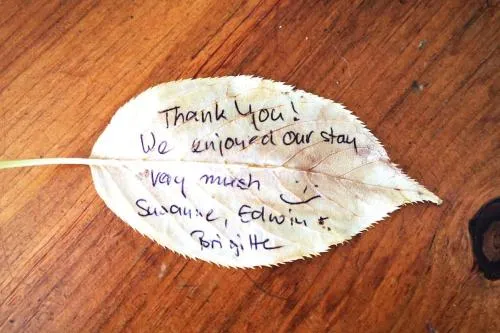 Thank You!
We enjoyed our stay
very mush :)
Susanne, Edwin +
Brigitte